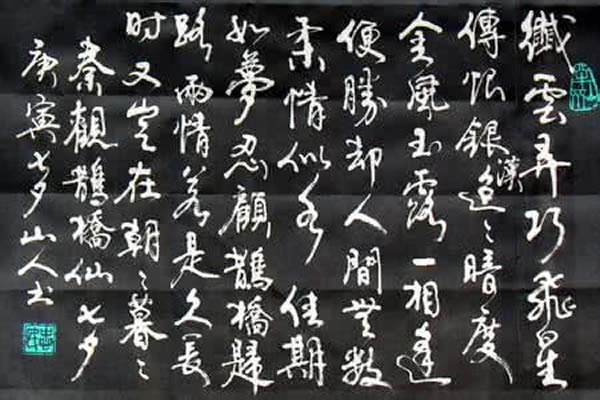 纖雲弄巧飛星
傳恨銀漢迢〻暗度
金風玉露一相逢
便勝却人間無数
柔情似水佳期
如夢忍顧鵲橋歸
路兩情若是久長
时又豈在朝〻暮〻
秦觀鵲橋仙七夕
庚寅七夕山人书